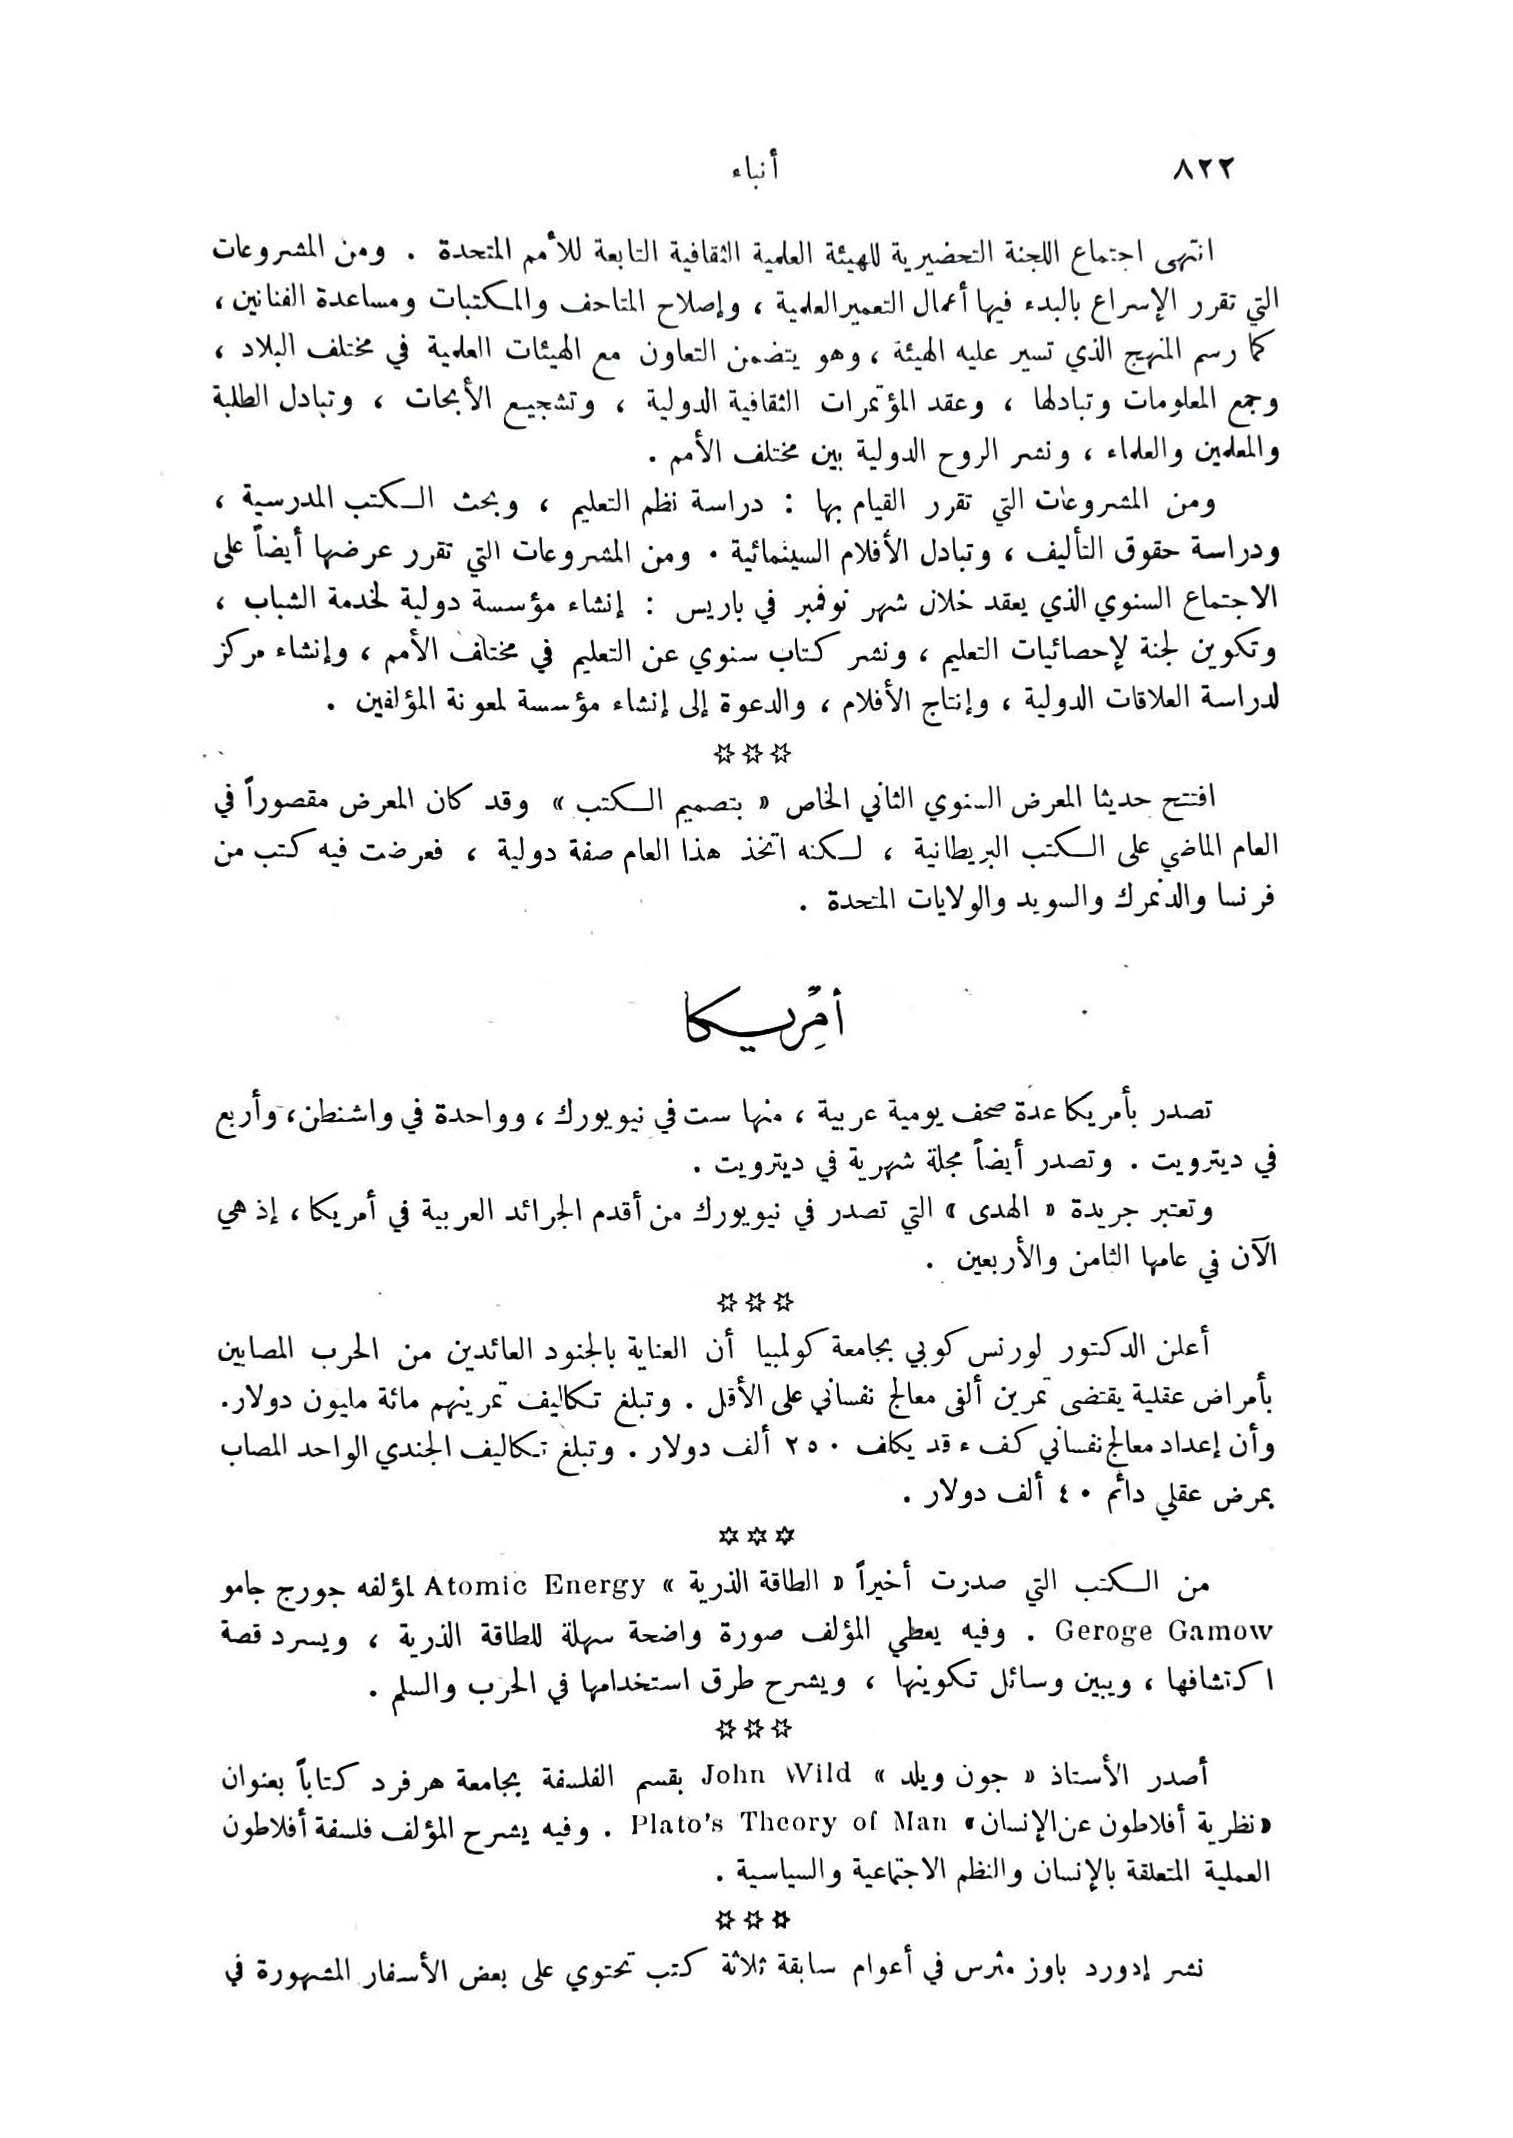 ٨٢٢
أنباء
انتهى اجتماع اللجنة التحضيرية للهيئة العلمية الثقافية التابعة للأمم المتحدة . ومن المشروعات
التي تقرر الإسراع بالبدء فيها أعمال التعمير العلمية ، وإصلاح المتاحف والمكتبات ومساعدة الفنانين ،
كما رسم المنهج الذي تسير عليه الهيئة ، وهو يتضمن التعاون مع الهيئات العلمية في مختلف البلاد ،
وجمع المعلومات وتبادلها ، وعقد المؤتمرات الثقافية الدولية ، وتشجيع الأبحاث ، وتبادل الطلبة
والمعلمين والعلماء ، ونشر الروح الدولية بين مختلف الأمم .
ومن المشروعات التي تقرر القيام بها : دراسة نظم التعليم ، وبحث الكتب المدرسية ،
ودراسة حقوق التأليف ، وتبادل الأفلام السينمائية . ومن المشروعات التي تقرر عرضها أيضاً على
الاجتماع السنوي الذي يعقد خلال شهر نوفمبر في باريس : إنشاء مؤسسة دولية لخدمة الشباب ،
وتكوين لجنة لإحصائيات التعليم ، ونشر كتاب سنوي عن التعليم في مختلف الأمم ، وإنشاء مركز
لدراسة العلاقات الدولية ، وإنتاج الأفلام ، والدعوة إلى إنشاء مؤسسة لمعونة المؤلفين .
✡ ✡ ✡
افتتح حديثا المعرض السنوي الثاني الخاص « بتصميم الكتب » وقد كان المعرض مقصوراً في
العام الماضي على الكتب البريطانية ، لكنه اتخذ هذا العام صفة دولية ، فعرضت فيه كتب من
فرنسا والدنمرك والسويد والولايات المتحدة .
أمريكا
تصدر بأمريكا عدة صحف يومية عربية ، منها ست في نيويورك ، وواحدة في واشنطن ، وأربع
في ديترويت . وتصدر أيضاً مجلة شهرية في ديترويت .
وتعتبر جريدة « الهدى » التي تصدر في نيويورك من أقدم الجرائد العربية في أمريكا ، إذ هي
الآن في عامها الثامن والأربعين .
✡ ✡ ✡
أعلن الدكتور لورنس كوبي بجامعة كولمبيا أن العناية بالجنود العائدين من الحرب المصابين
بأمراض عقلية يقتضى تمرين ألفى معالج نفساني على الأقل . وتبلغ تكاليف تمرينهم مائة مليون دولار.
وأن إعداد معالج نفساني كفء قد يكلف ٢٥٠ ألف دولار . وتبلغ تكاليف الجندي الواحد المصاب
بمرض عقلي دائم ٤٠ ألف دولار .
✡ ✡ ✡
من الكتب التي صدرت أخيراً « الطاقة الذرية » Atomic Energy لمؤلفه جورج جامو
Geroge Gamow . وفيه يعطي المؤلف صورة واضحة سهلة للطاقة الذرية ، ويسرد قصة
اكتشافها ، ويبين وسائل تكوينها ، ويشرح طرق استخدامها في الحرب والسلم .
✡ ✡ ✡
أصدر الأستاذ « جون ويلد » John Wild بقسم الفلسفة بجامعة هرفرد كتاباً بعنوان
« نظرية أفلاطون عن الإنسان » Plato's Theory of Man . وفيه يشرح المؤلف فلسفة أفلاطون
العملية المتعلقة بالإنسان والنظم الاجتماعية والسياسية .
✡ ✡ ✡
نشر إدورد باوز مثرس في أعوام سابقة ثلاثة كتب تحتوي على بعض الأسفار المشهورة في